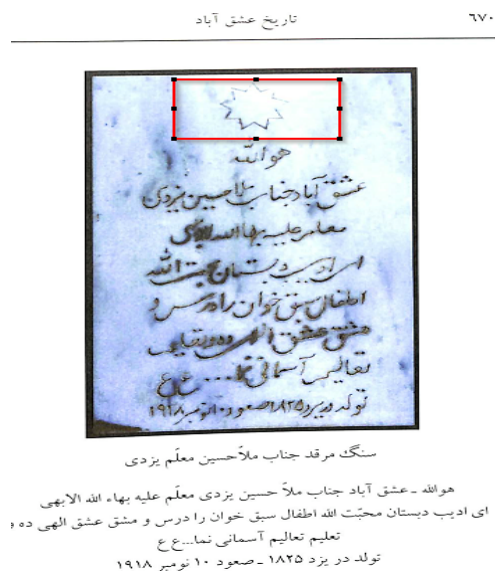 تاریخ عشق آباد ۶۷۰
هوالله
عشق آباد جناب ملا حسین یزدی
معلم علیه بهاء الله الابهی
ای ادیب دبستان محبت الله
اطفال سبق خوان را درس و
مشق عشق الهی ده و تعلیم
تعالیم آسمانی نما... ع ع
تولد در یزد ۱۸۲۵ صعود ۱۰ نومبر ۱۹۱۸
سنگ مرقد جناب ملاّحسین معلّم یزدی
هوالله ـ عشق آباد جناب ملاّ حسین یزدی معلّم علیه بهاء الله الابهی
ای ادیب دبستان محبّت الله اطفال سبق خوان را درس و مشق عشق الهی ده و
تعلیم تعالیم آسمانی نما...ع ع
تولد در یزد ۱۸۲۵ ـ صعود ۱۰ نومبر ۱۹۱۸